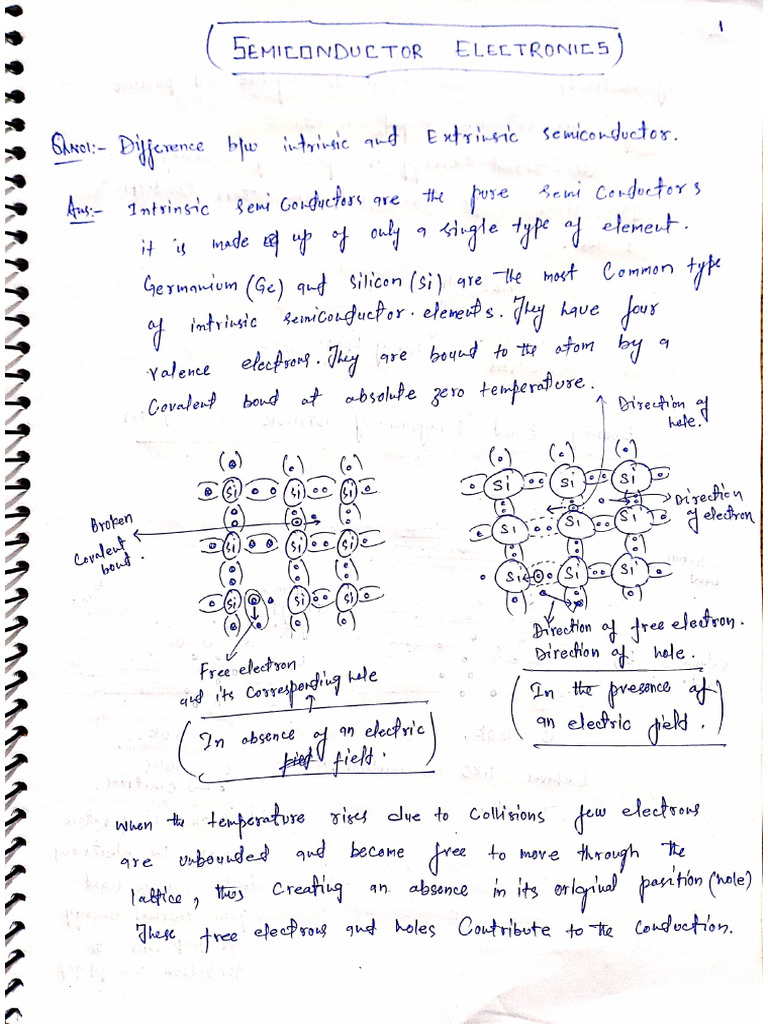 1
SEMICONDUCTOR ELECTRONICS
QNo1:- Difference b/w intrinsic and Extrinsic semiconductor.
Ans:- Intrinsic semi Conductors are the pure semi Conductors
it is made up of only a single type of element.
Germanium (Ge) and silicon (si) are the most Common type
of intrinsic semiconductor. elements. They have four
valence electrons. They are bound to the atom by a
Covalent bond at absolute zero temperature.
Direction of
hole.
Si Si Si
Si Si Si
Si Si Si
Broken
Covalent
bond.
Si Si Si
Si Si Si
Si Si Si
Direction
of electron
Free electron
and its Corresponding hole
In absence of an electric
field.
Direction of free electron.
Direction of hole.
In the presence of
an electric field.
when the temperature rises due to Collisions few electrons
are unbounded and become free to move through the
lattice, thus Creating an absence in its original position (hole)
These free electrons and holes Contribute to the conduction.